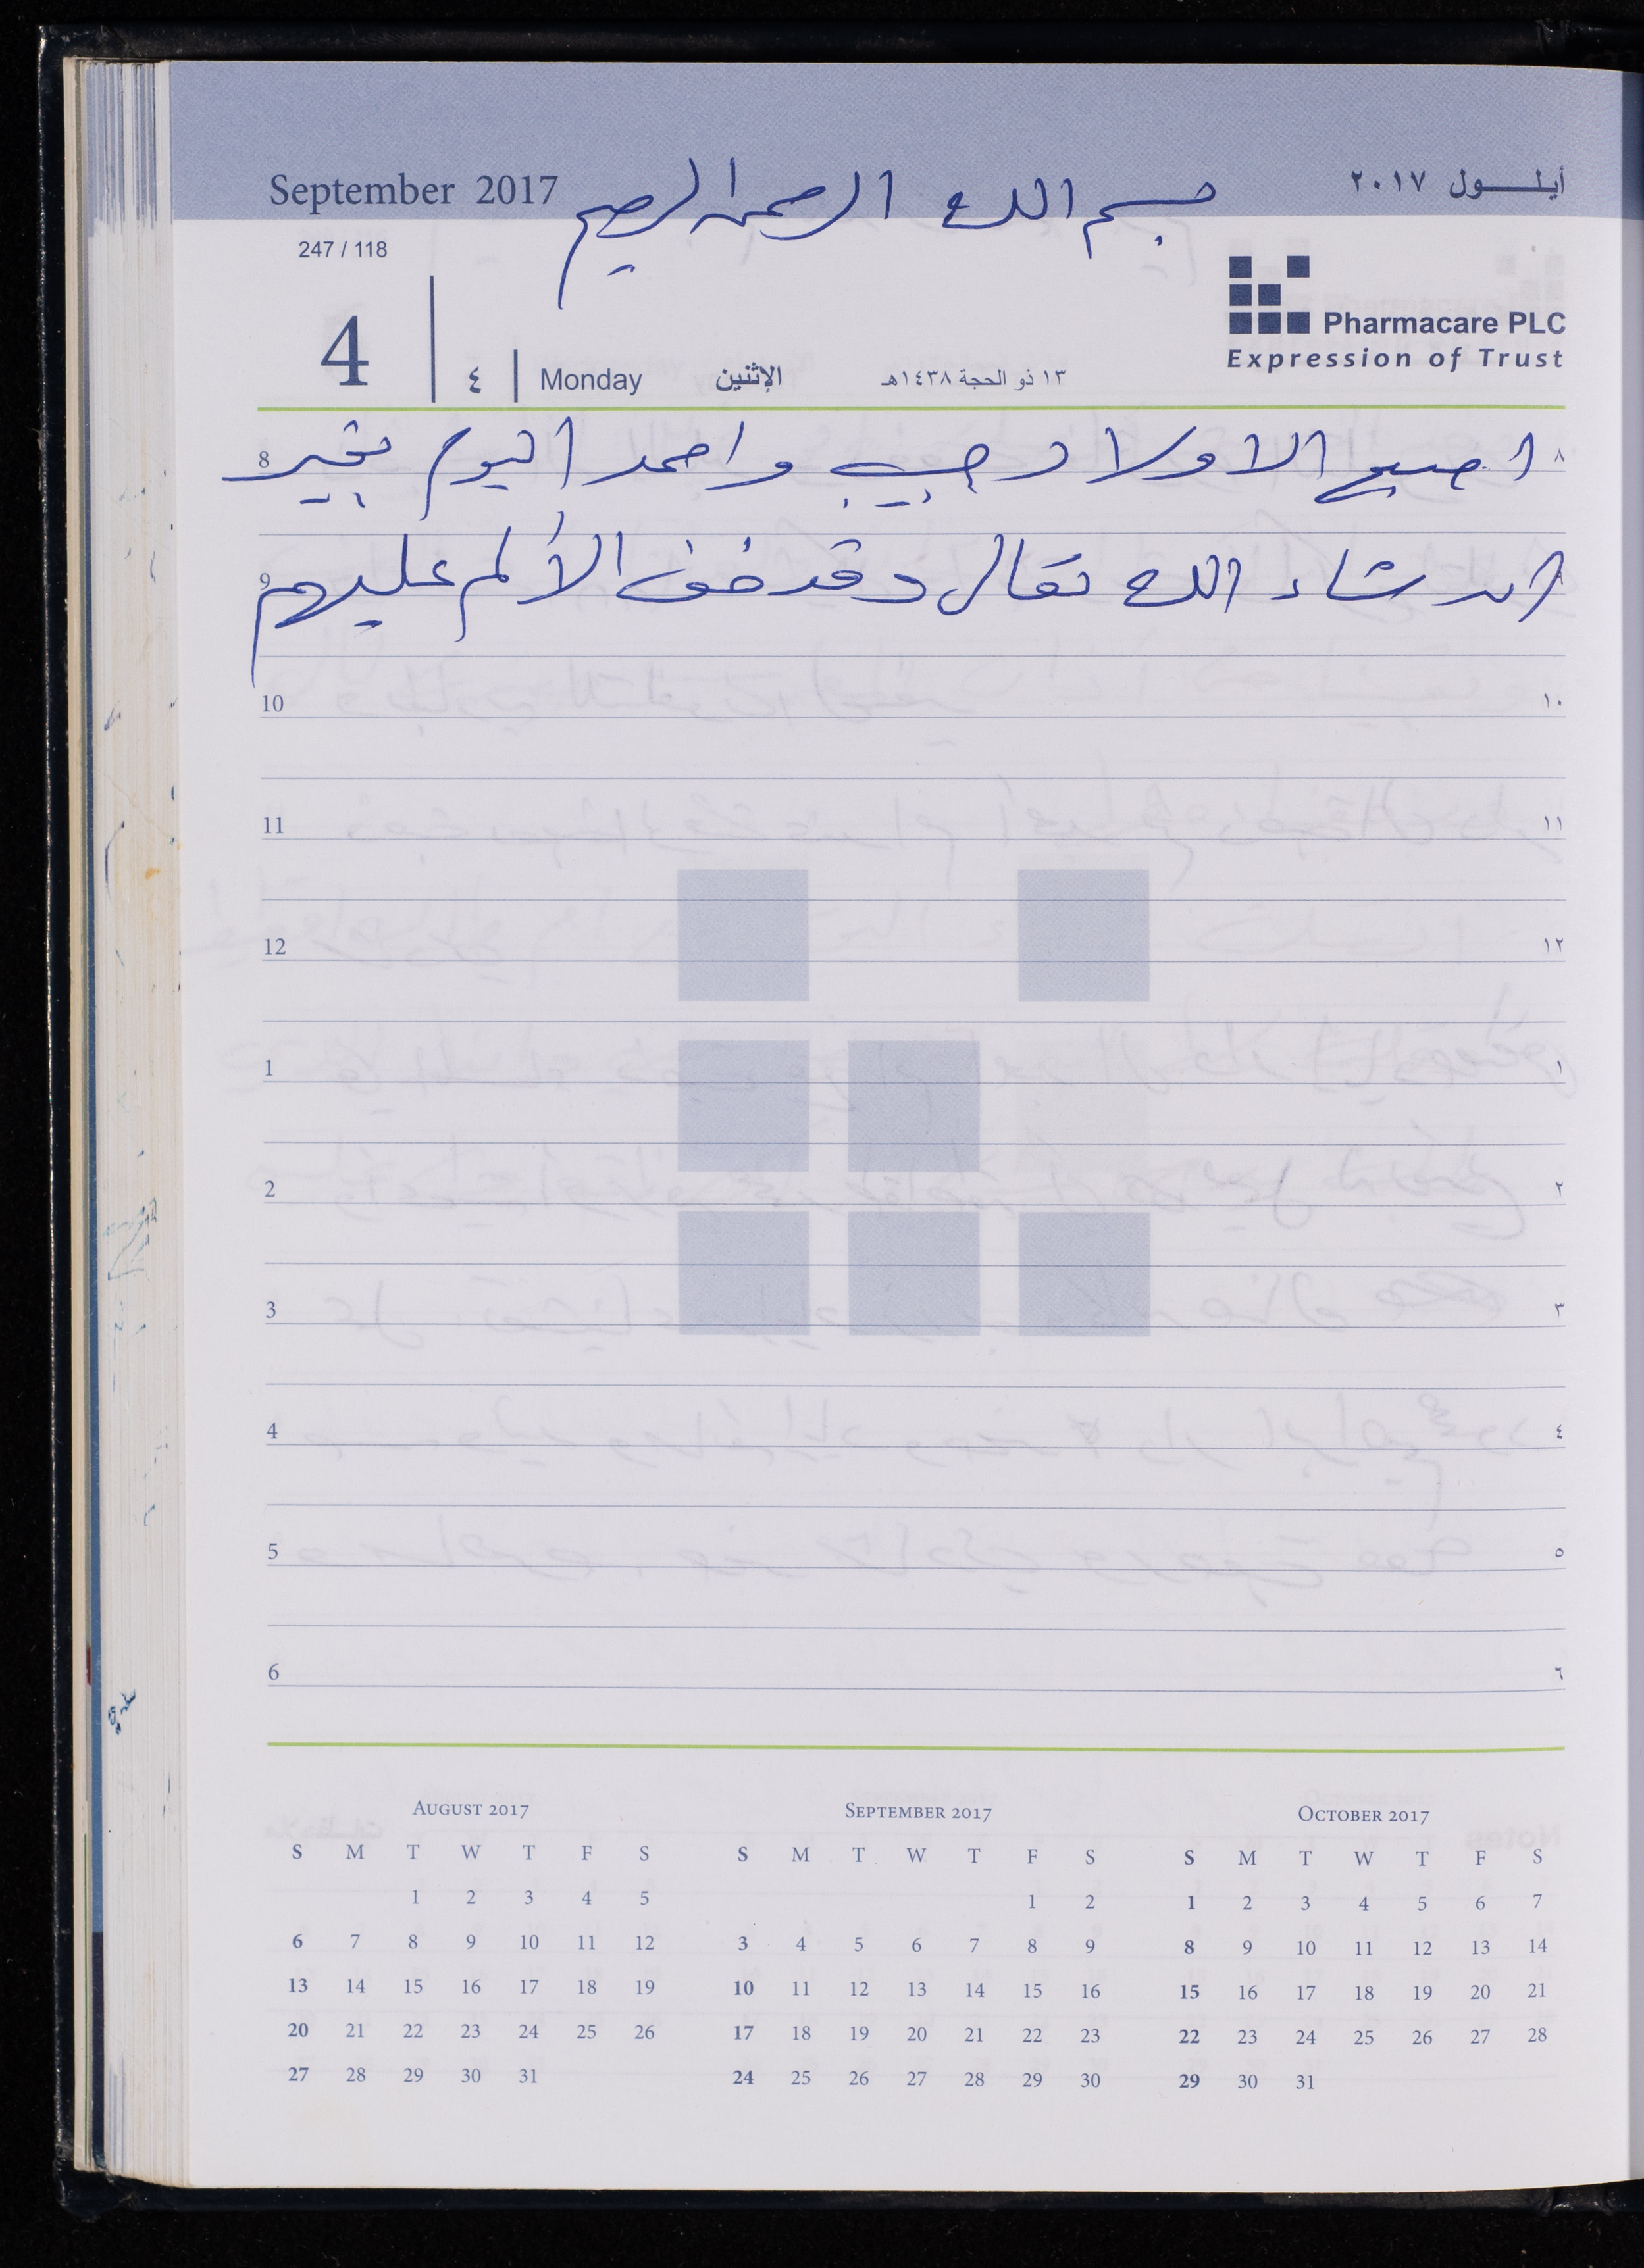 September 2017 بسم الله الرحمن الرحيم أيلــــول ٢٠١٧
247 / 118
Pharmacare PLC
Expression of Trust
4 ٤ Monday الإثنين ١٣ ذو الحجة ١٤٣٨هـ
8 اصبح الاولاد حبيب واحمد اليوم بخير ٨
9 ان شاء الله تعالى وقد خف الألم عليهم
10 ١٠
11 ١١
12 ١٢
1 ١
2 ٢
3 ٣
4 ٤
5 ٥
6 ٦
AUGUST 2017
S M T W T F S
1 2 3 4 5
6 7 8 9 10 11 12
13 14 15 16 17 18 19
20 21 22 23 24 25 26
27 28 29 30 31
SEPTEMBER 2017
S M T W T F S
1 2
3 4 5 6 7 8 9
10 11 12 13 14 15 16
17 18 19 20 21 22 23
24 25 26 27 28 29 30
OCTOBER 2017
S M T W T F S
1 2 3 4 5 6 7
8 9 10 11 12 13 14
15 16 17 18 19 20 21
22 23 24 25 26 27 28
29 30 31